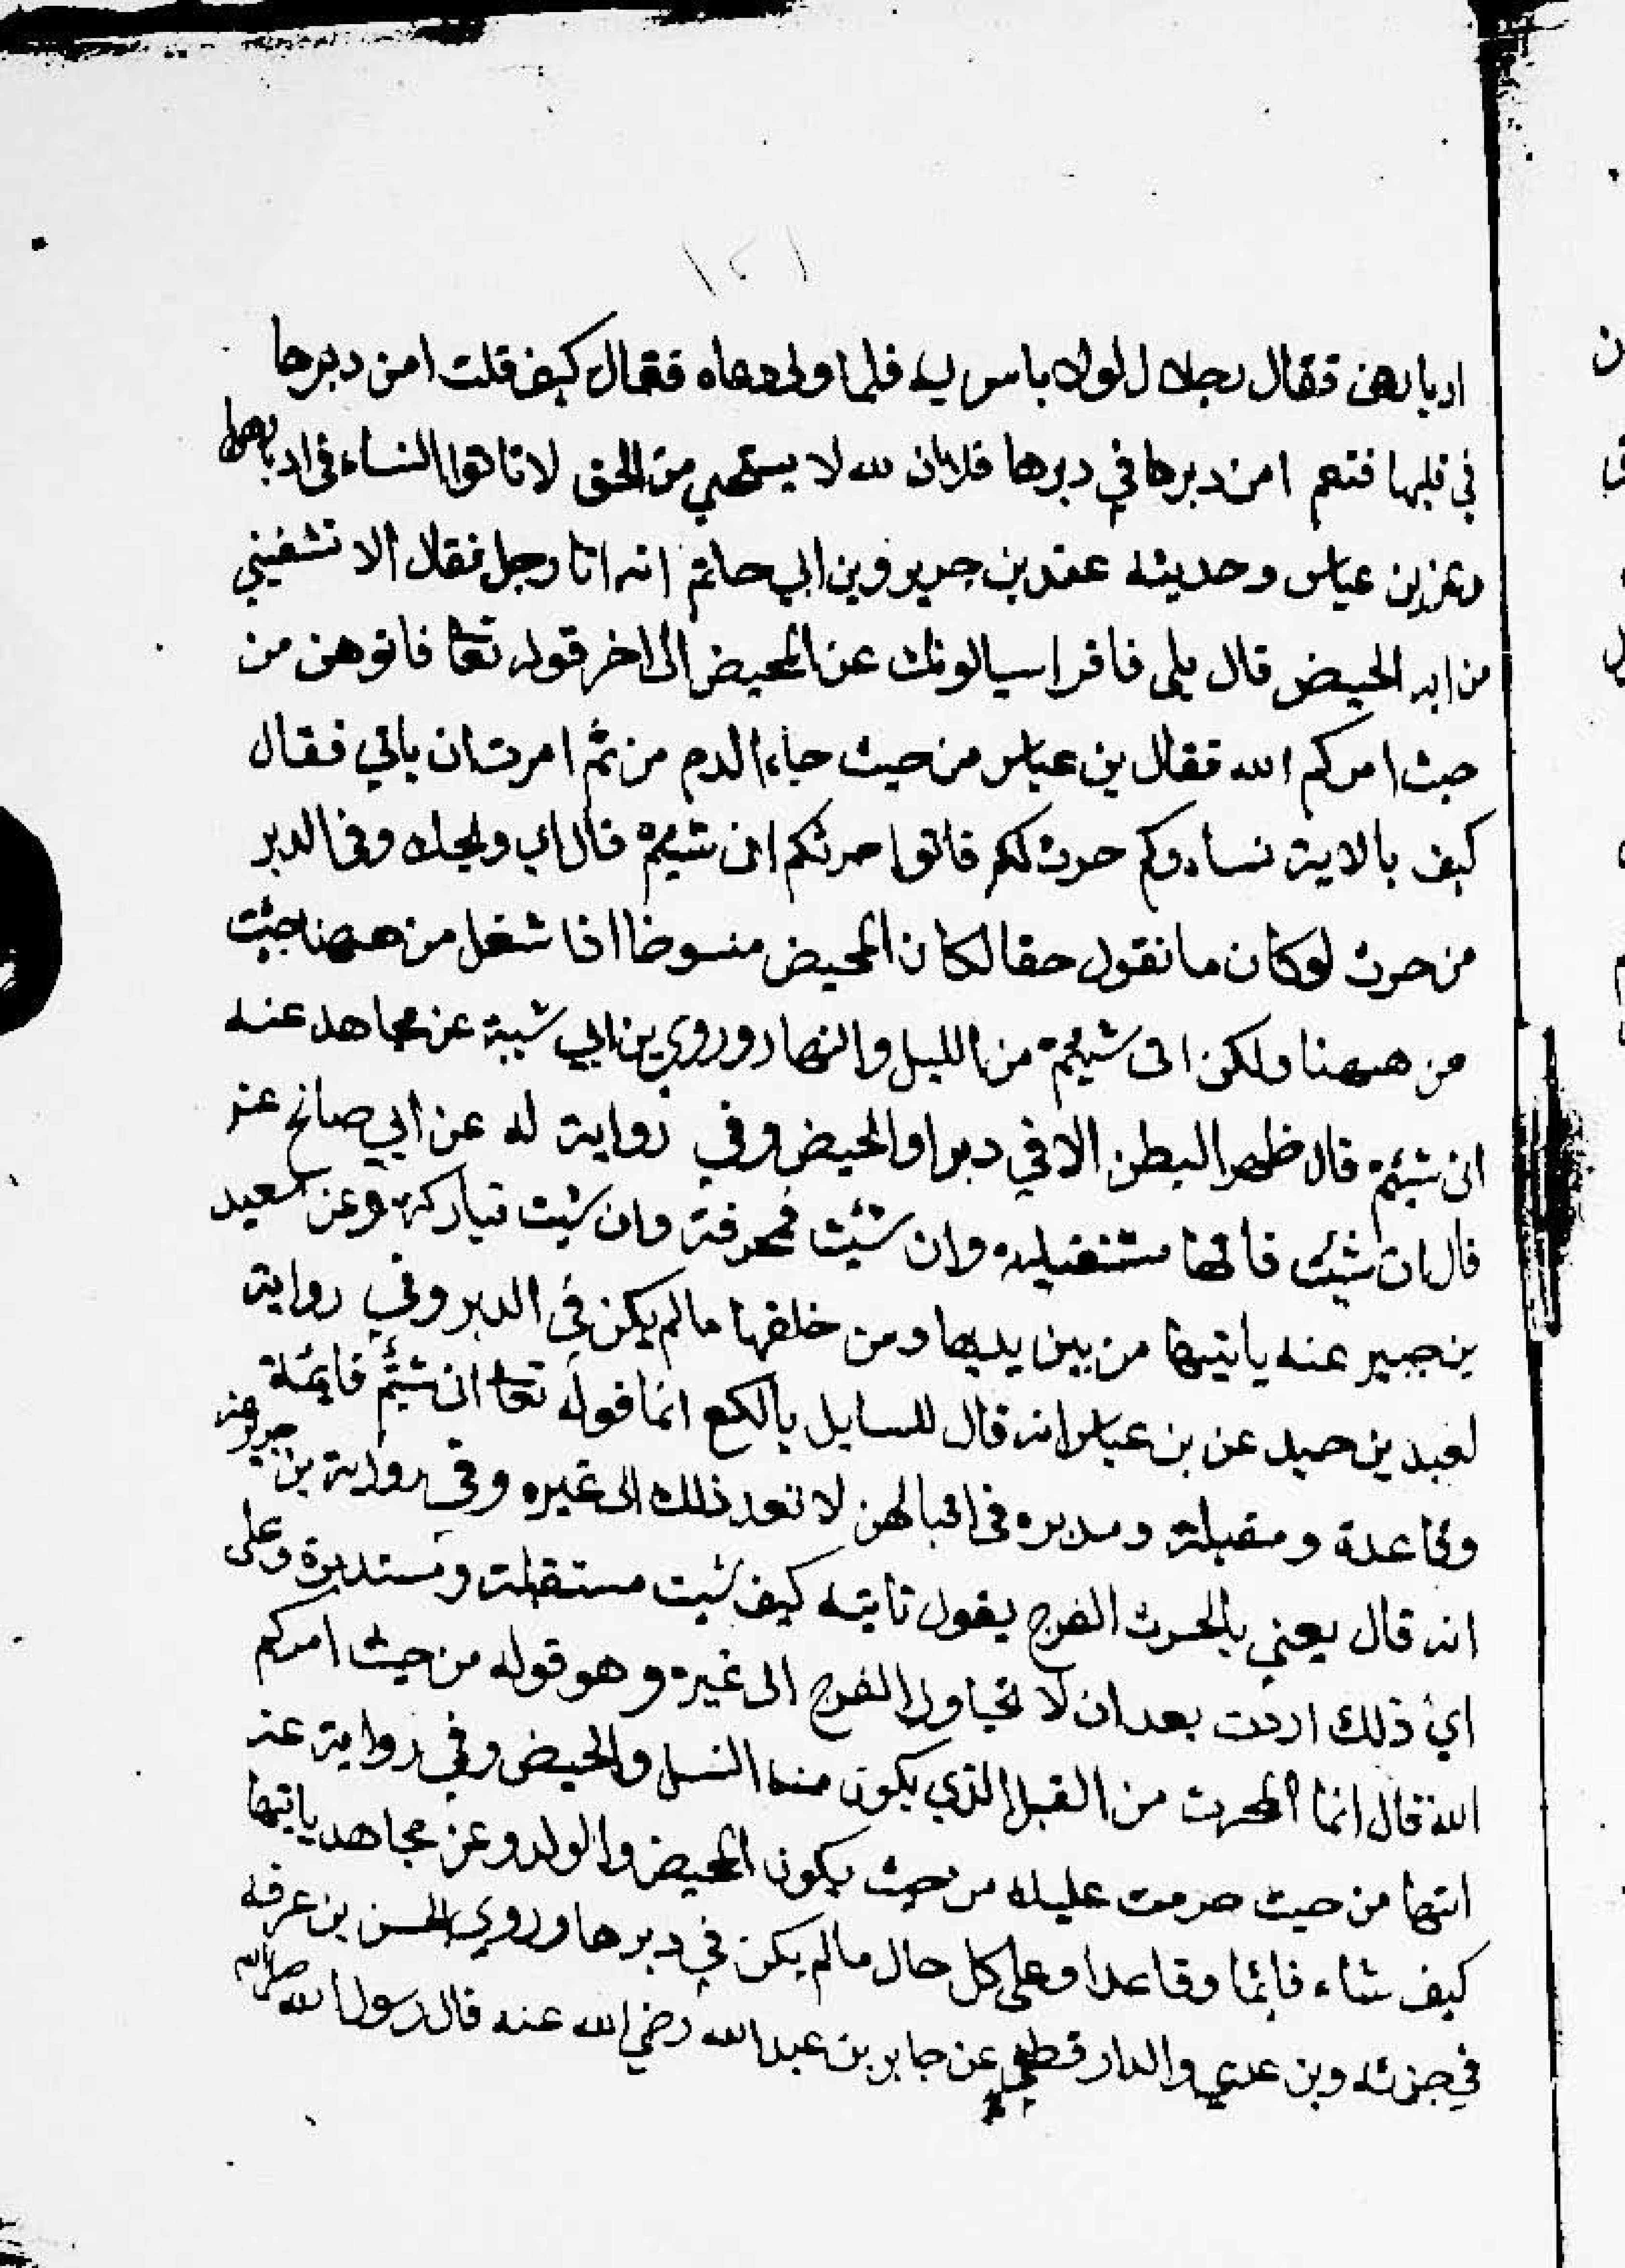 ١٢١
ادبارهن فقال رجلا لولا باس به فلما ولى دعاه فقال كيف قلت امن دبرها
في قبلها فنعم امن دبرها في دبرها فلا ان الله لا يستحيي من الحق لا تاتوا النساء في ادبارهن
وعن بن عباس وحديثه عند بن جرير وبن ابي حاتم انه اتا رجل فقال الا تشفيني
من ايه الحيض قال بلى فاقرا سيالونك عن المحيض الى اخر قوله تعا فاتوهن من
حيث امركم الله فقال بن عباس من حيث جاء الدم من ثم امرت ان ياتي فقال
كيف بالاية نساءوكم حرث لكم فاتوا حرثكم انى شيتم قال اي ويحك وفي الدبر
من حرث لوكان ما تقول حقا لكان المحيض منسوخا اذا شغل من ههنا جئت
من ههنا ولكن انى شيتم من الليل والنهار وروي بن ابي شيبة عن مجاهد عنه
انى شيتم قال ظهر البطن الا في دبر او الحيض وفي رواية له عن ابي صالح عنه
قال ان شئت فاتها مستقبله وان شئت فمحرفة وان شيت فباركة وعن سعيد
بن جبير عنه ياتيها من بين يديها ومن خلفها مالم يكن في الدبر وفي رواية
لعبد بن حميد عن بن عباس انه قال للسايل يا لكع انما قوله تعا انى شيتم قايمة
وقاعدة ومقبلة ومدبره في اقبالهن لا تعد ذلك الى غيره وفي رواية بن جرير عنه
انه قال يعني بالحرث الفرج يقول تاتيه كيف شيت مستقبلة ومستدبرة وعلى
اي ذلك اردت بعد ان لا تجاوز الفرج الى غيره وهو قوله من حيث امركم
الله قال انما الحرث من القبل الذي يكون منه النسل والحيض وفي رواية عنه
ائتها من حيث حرمت عليك من حيث يكون المحيض والولد وعن مجاهد ياتيها
كيف شاء قايما وقاعدا وعلى كل حال مالم يكن في دبرها وروي الحسن بن عرفه
في جزئه وبن عدي والدارقطني عن جابر بن عبدالله رضي الله عنه قال رسول الله صلى الله